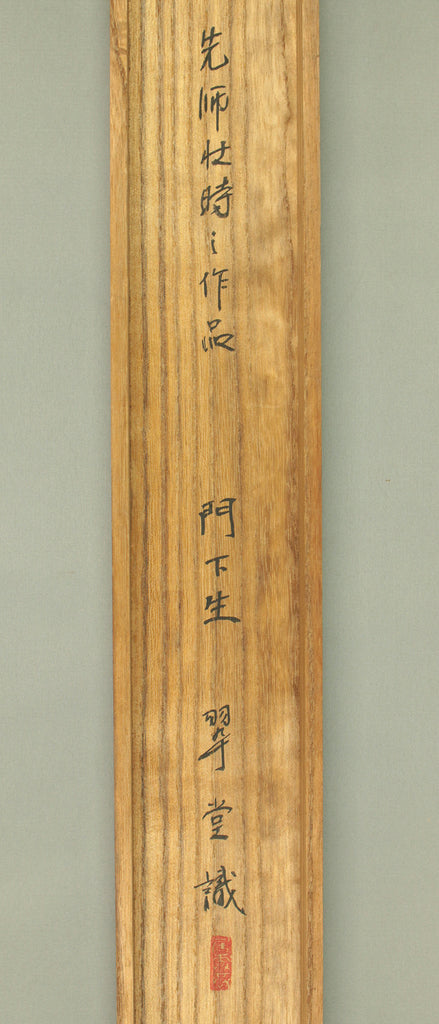 先师壮時之作品 門下生 翠堂識